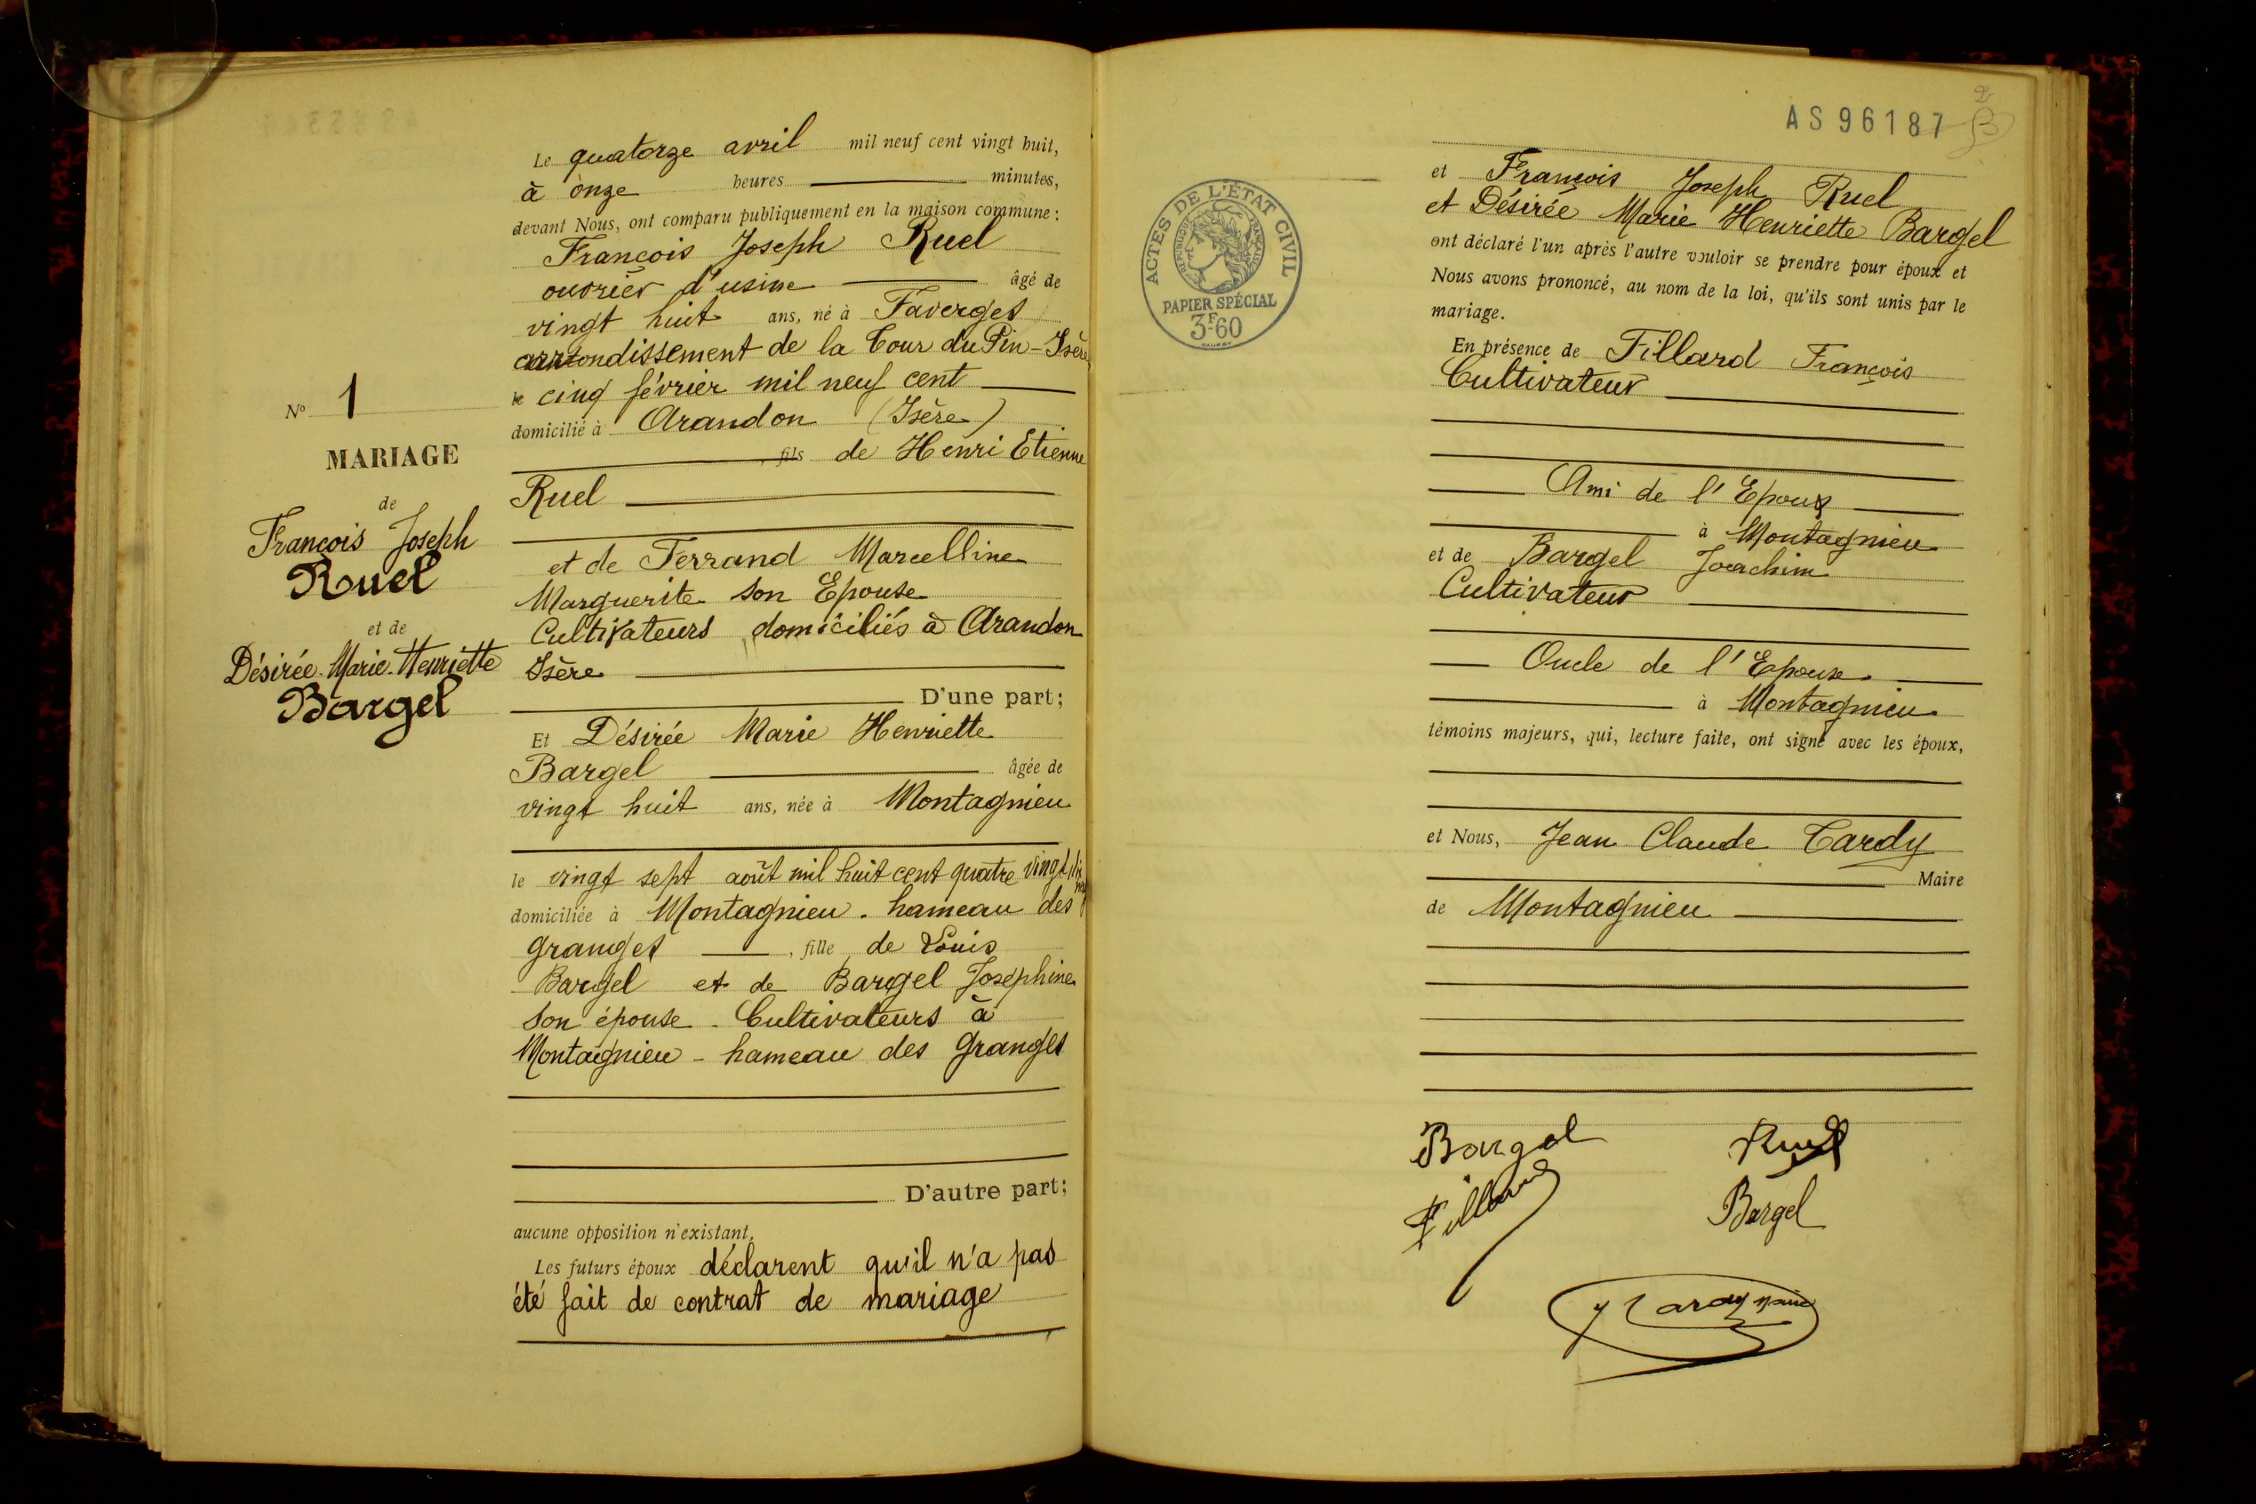 Le quatorze avril mil neuf cent vingt huit,
à onze heures minutes,
devant Nous, ont comparu publiquement en la maison commune :
François Joseph Ruel
ouvrier d'usine âgé de
vingt huit ans, né à Faverges
arrondissement de la Tour du Pin - Isère
le cinq février mil neuf cent
domicilié à Arandon (Isère)
, fils de Henri Etienne
Ruel
et de Ferrand Marcelline
Marguerite son Epouse
Cultivateurs domiciliés à Arandon
Isère
D'une part ;
Et Désirée Marie Henriette
Bargel âgée de
vingt huit ans, née à Montagnieu
le vingt sept août mil huit cent quatre vingt dix neuf
domiciliée à Montagnieu . hameau des
granges , fille de Louis
Bargel et de Bargel Joséphine
son épouse . Cultivateurs à
Montagnieu - hameau des granges
D'autre part ;
aucune opposition n'existant.
Les futurs époux déclarent qu'il n'a pas
été fait de contrat de mariage
N° 1
MARIAGE
de
François Joseph
Ruel
et de
Désirée . Marie . Henriette
Bargel
AS 96187
2
ACTES DE L'ÉTAT CIVIL
RÉPUBLIQUE FRANÇAISE
PAPIER SPÉCIAL
3F.60
et François Joseph Ruel
et Désirée Marie Henriette Bargel
ont déclaré l'un après l'autre vouloir se prendre pour époux et
Nous avons prononcé, au nom de la loi, qu'ils sont unis par le
mariage.
En présence de Fillard François
Cultivateur
Ami de l'Epoux
à Montagnieu
et de Bargel Joachim
Cultivateur
Oncle de l'Epouse
à Montagnieu
témoins majeurs, qui, lecture faite, ont signé avec les époux,
et Nous, Jean Claude Tardy
Maire
de Montagnieu
Bargel Ruel
Fillard Bargel
Tardy maire